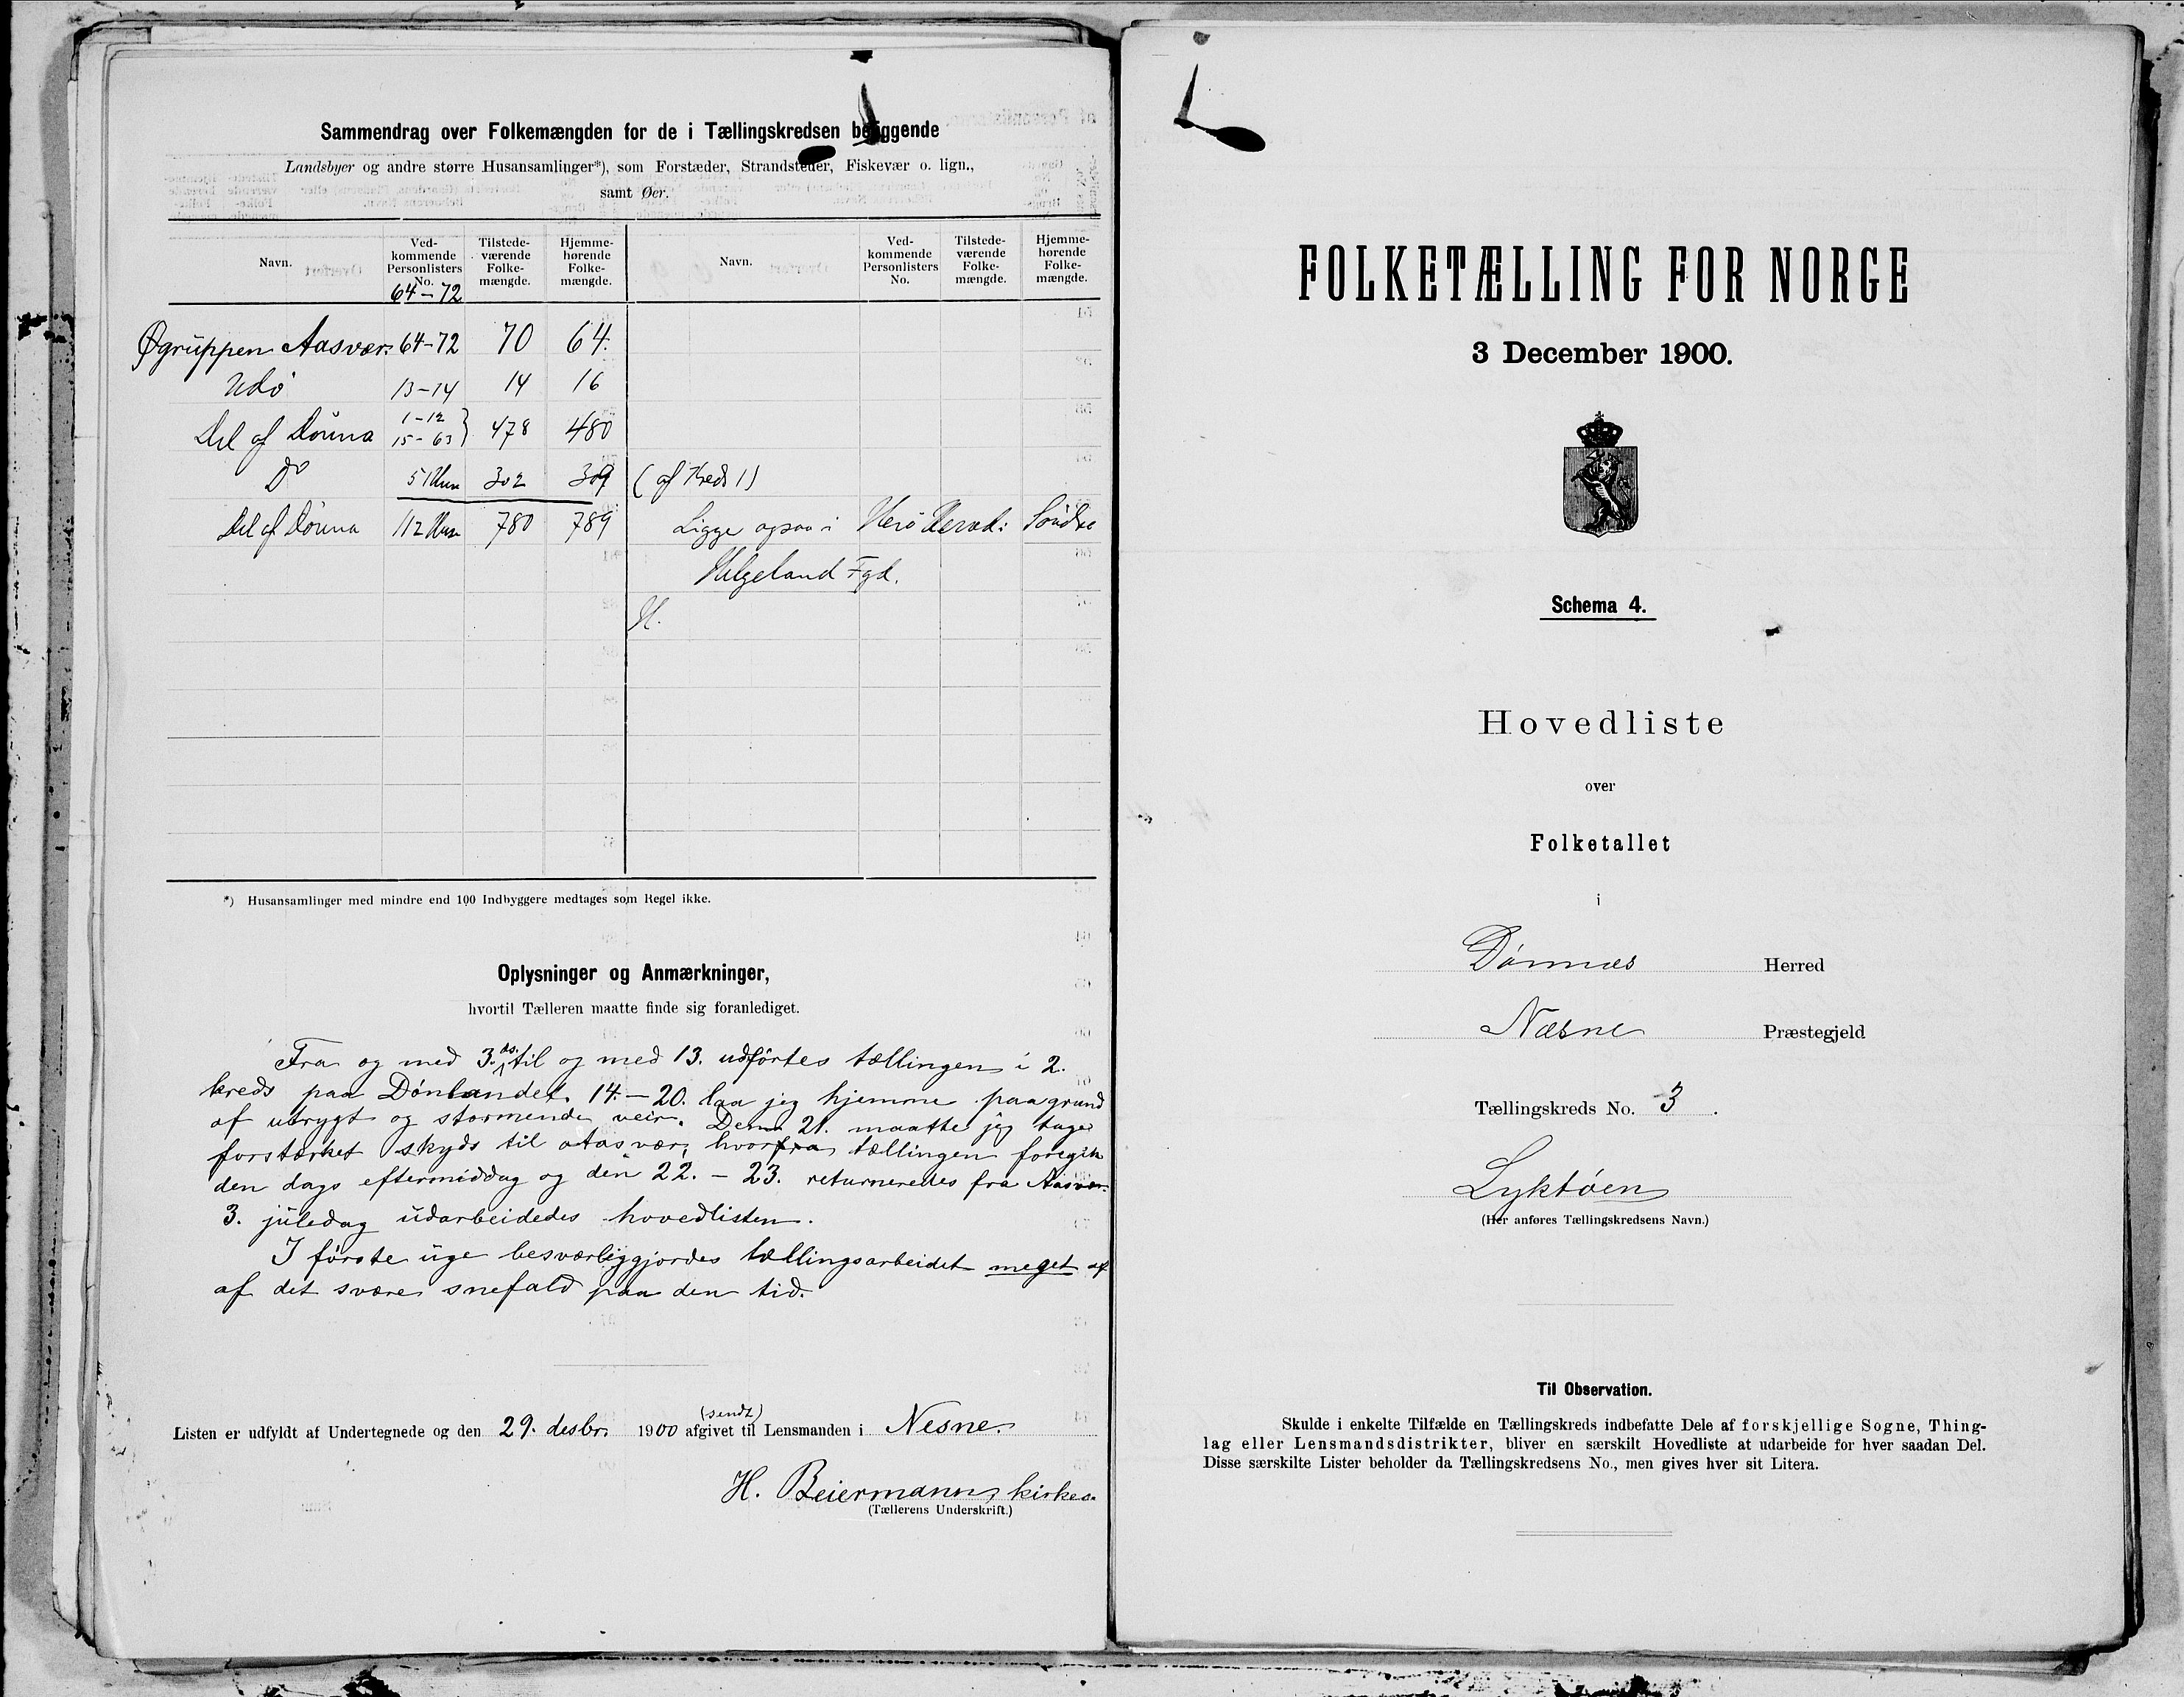 Sammendrag over Folkemængden for de i Tællingskredsen beliggende
Landsbyer og andre større Husansamlinger*), som Forstæder, Strandsteder, Fiskevær o. lign.,
samt Øer.
Navn. Ved-kommende Personlisters No. Tilstede-værende Folke-mængde. Hjemme-hørende Folke-mængde. Navn. Ved-kommende Personlisters No. Tilstede-værende Folke-mængde. Hjemme-hørende Folke-mængde.
64-72
Øgruppen Aasvær 64-72 70 64.
Udø 13-14 14 16
Del af Dønna 1-12 15-63 } 478 480
Do 51 Huse 302 309 (af Kreds 1)
Del af Dønna 112 Huse 780 789 Ligge ogsaa i Herø Herred: Søndre
Helgeland Fgd.
H.
*) Husansamlinger med mindre end 100 Indbyggere medtages som Regel ikke.
Oplysninger og Anmærkninger,
hvortil Tælleren maatte finde sig foranlediget.
Fra og med 3. ds. til og med 13. udførtes tællingen i 2.
kreds paa Dønlandet. 14.-20. laa jeg hjemme paa grund
af utrygt og stormende veir. Den 21. maatte jeg tage
forstærket skyds til Aasvær, hvorfra tællingen foregik
den dags eftermiddag og den 22. - 23. returneredes fra Aasvær.
3. juledag udarbeidedes hovedlisten.
I første uge besværliggjordes tællingsarbeidet meget af
af det svære snefald paa den tid.
Listen er udfyldt af Undertegnede og den 29. desbr. 1900 (sendt) afgivet til Lensmanden i Nesne.
H. Beiermann, kirkes.
(Tællerens Underskrift.)
FOLKETÆLLING FOR NORGE
3 December 1900.
Schema 4.
Hovedliste
over
Folketallet
i
Dønnæs Herred
Næsne Præstegjeld
Tællingskreds No. 3.
Lyktøen
(Her anføres Tællingskredsens Navn.)
Til Observation.
Skulde i enkelte Tilfælde en Tællingskreds indbefatte Dele af forskjellige Sogne, Thing-
lag eller Lensmandsdistrikter, bliver en særskilt Hovedliste at udarbeide for hver saadan Del.
Disse særskilte Lister beholder da Tællingskredsens No., men gives hver sit Litera.